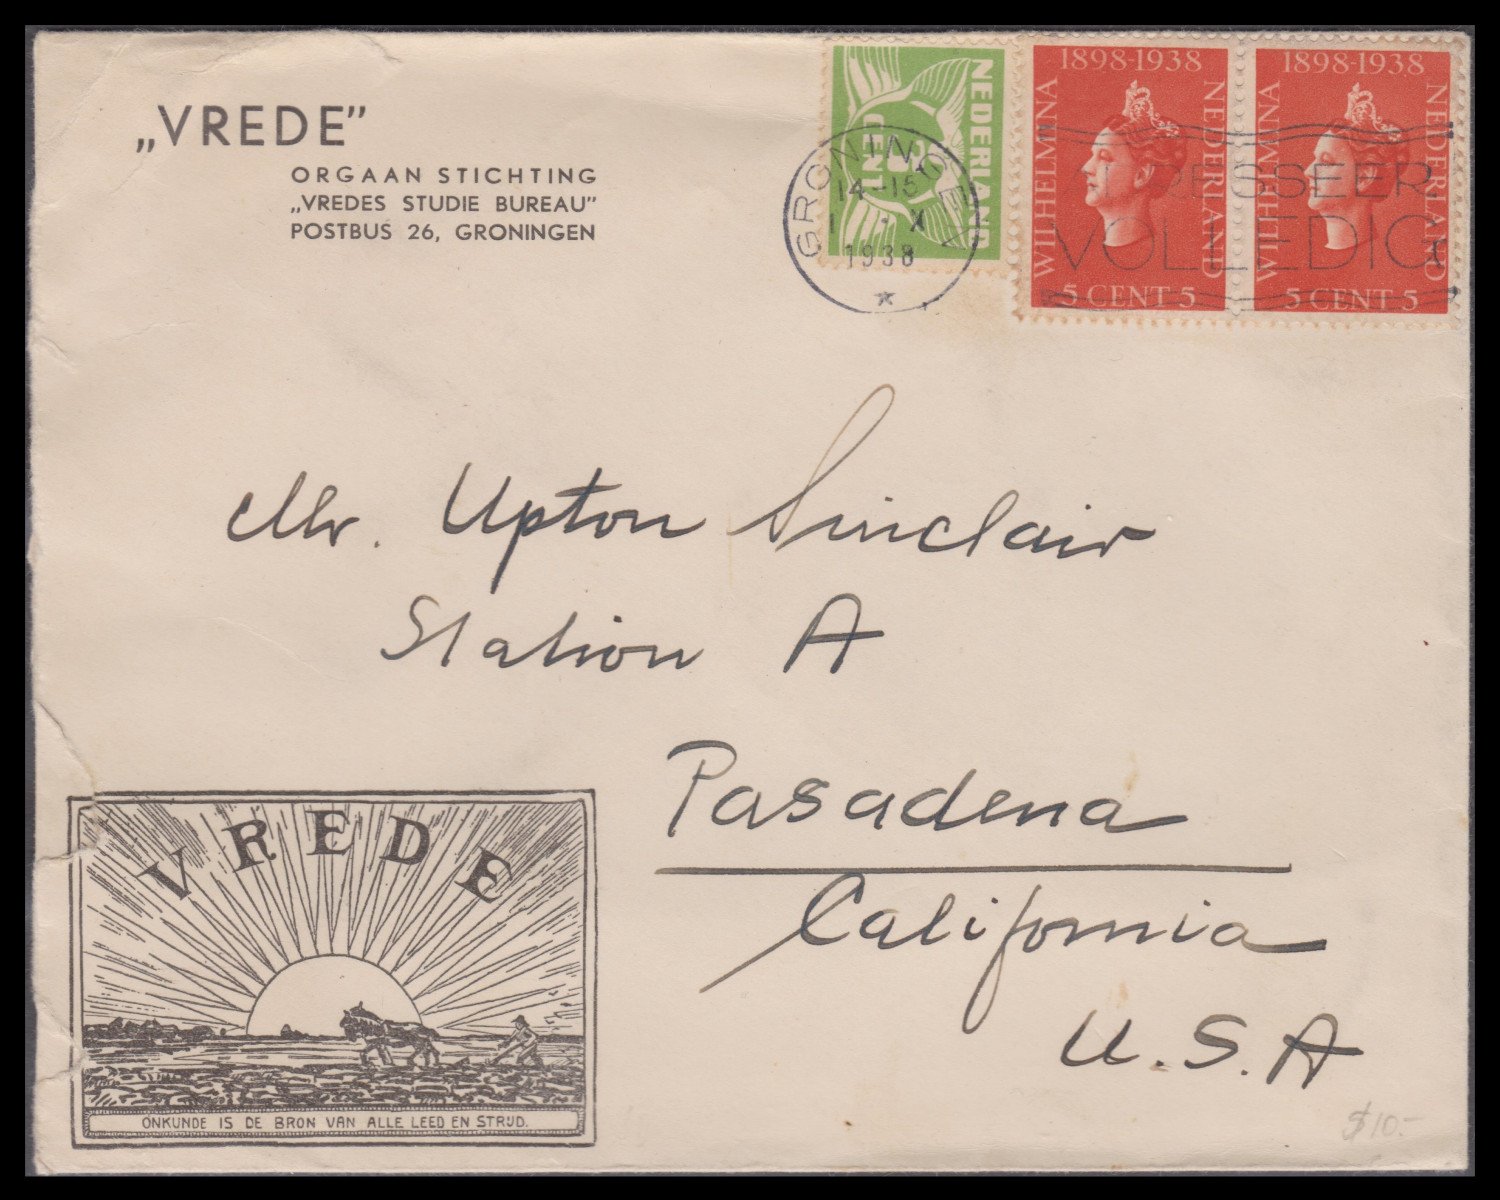 „VREDE”
ORGAAN STICHTING
„VREDES STUDIE BUREAU”
POSTBUS 26, GRONINGEN
NEDERLAND
CENT
GRONINGEN
14-15
X
1938
1898-1938
WILHELMINA
NEDERLAND
5 CENT 5
1898-1938
WILHELMINA
NEDERLAND
5 CENT 5
ADRESSEER
VOLLEDIG
Mr. Upton Sinclair
Station A
Pasadena
California
U.S.A
VREDE
ONKUNDE IS DE BRON VAN ALLE LEED EN STRIJD.
$10.-